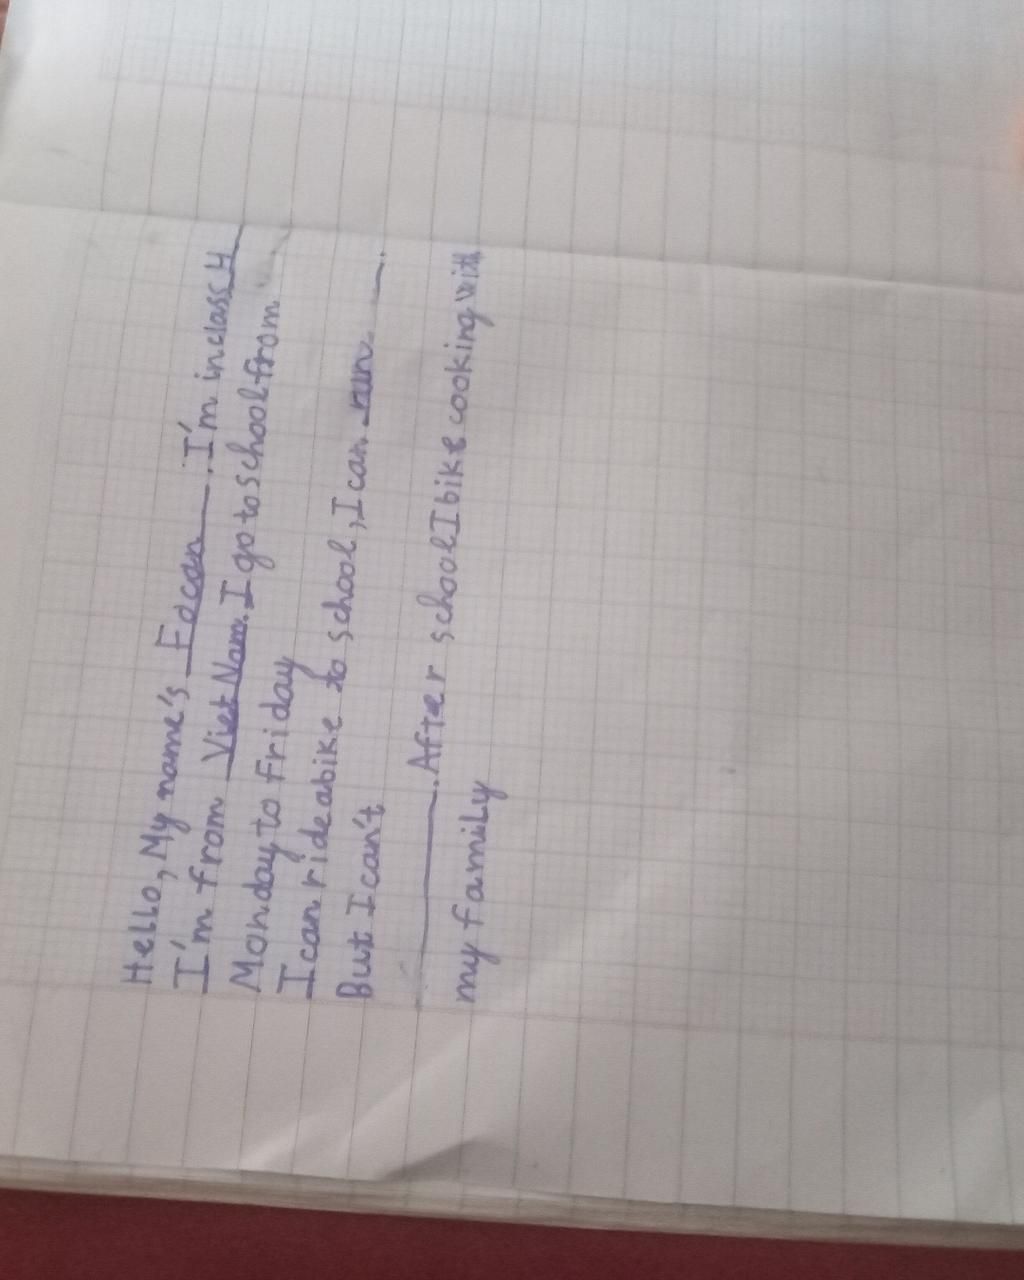 Hello, My name's Facan. I'm in class 4
I'm from Viet Nam. I go to school from
Monday to Friday
I can ride a bike to school, I can run.
But I can't
. After school I bike cooking with
my family